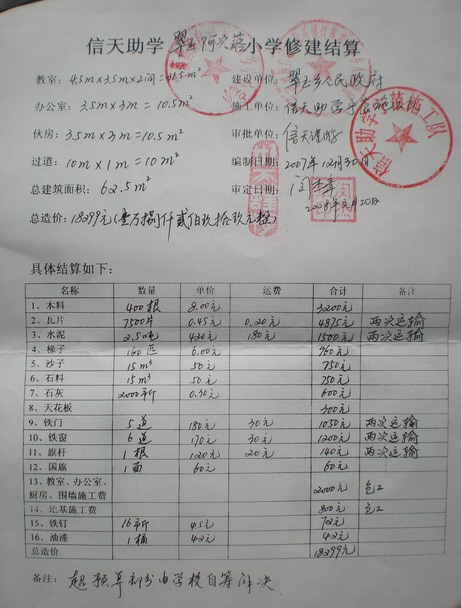 信天助学 翠玉 小学修建结算
教室: 4.5m×3.5m×2间=31.5m² 建设单位: 翠玉乡人民政府
办公室: 3.5m×3m=10.5m² 施工单位: 信天助学
伙房: 3.5m×3m=10.5m² 审批单位: 信天
过道: 10m×1m=10m² 编制日期: 2007年12月30日
总建筑面积: 62.5m² 审定日期:
总造价: 18299元(壹万捌仟贰佰玖拾玖元整)
信天助学 施工队
具体结算如下:
名称 数量 单价 运费 合计 备注
1、木料 400根 8.00元 3200元
2、瓦片 7500片 0.45元 0.20元 4875元 两次运输
3、水泥 2.5吨 420元 180元 1500元 两次运输
4、梯子 160匹 6.00元 960元
5、沙子 15m³ 50元 750元
6、石料 15m³ 50元 750元
7、石灰 2000斤 0.30元 600元
8、天花板 300元
9、铁门 5道 180元 30元 1050元 两次运输
10、铁窗 6道 170元 30元 1200元 两次运输
11、旗杆 1根 120元 20元 140元 两次运输
12、国旗 1面 60元 60元
13、教室、办公室、
厨房、围墙施工费 2000元 包工
14、地基施工费 800元 包工
15、铁钉 16斤 4.5元 72元
16、油漆 1桶 42元 42元
总造价 18299元
备注: 超预算部分由学校自筹解决